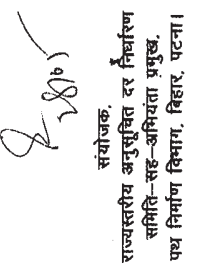 संयोजक,
राज्यस्तरीय अनुसूचित दर निर्धारण
समिति–सह–अभियंता प्रमुख,
पथ निर्माण विभाग, बिहार, पटना।